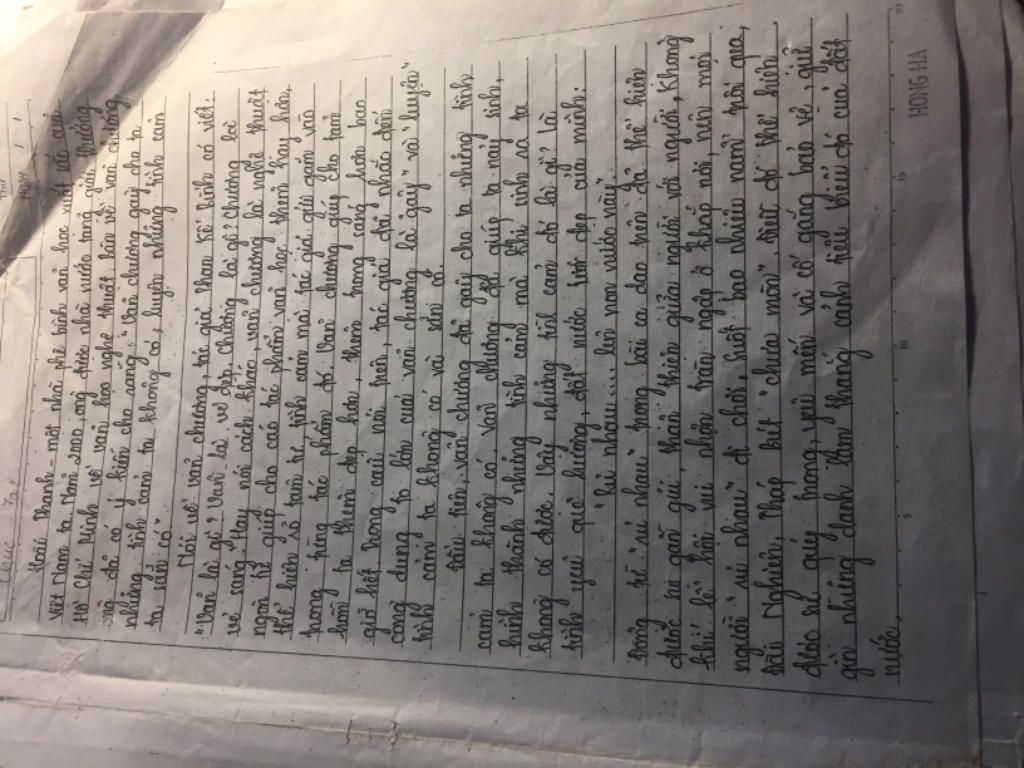 Hoài Thanh - một nhà phê bình văn học xuất sắc của
Việt Nam ta. Năm 2000, ông được nhà nước tặng giải thưởng
Hồ Chí Minh về văn hóa nghệ thuật. bàn về văn chương,
ông đã có ý kiến cho rằng: "Văn chương gây cho ta
những tình cảm ta không có, luyện những tình cảm
ta sẵn có"
Nói về văn chương, tác giả Phan Kế Bính có viết
"Văn là gì? Văn là vẻ đẹp. Chương là gì? Chương là
vẻ sáng". Hay nói cách khác, văn chương là nghệ thuật
ngôn từ giúp cho các tác phẩm văn học thêm hay hơn,
thể hiện rõ tâm tư, tình cảm mà tác giả gửi gắm vào
trong từng tác phẩm đó. Văn chương giúp cho tâm
hồn ta thêm đẹp hơn, thêm trong sáng hơn bao
giờ hết. Trong câu nói trên, tác giả đã nhắc đến
công dụng to lớn của văn chương là "gây" và "luyện"
tình cảm ta không có và sẵn có.
Đầu tiên, văn chương đã gây cho ta những tình
cảm ta không có, văn chương đã giúp ta nảy sinh,
hình thành những tình cảm mà khi sinh ra ta
không có được. Vậy những tình cảm đó là gì? là
tình yêu quê hương, đất nước tươi đẹp của mình:
"Rủ nhau.... lên non nước này"
bóng từ "rủ nhau" trong bài ca dao trên đã thể hiện
được sự gần gũi, thân thiện giữa người với người, Không
khí lễ hội vui nhộn tràn ngập ở khắp nơi, nên mọi
người "rủ nhau" đi chơi, suốt bao nhiêu năm trôi qua,
Đài Nghiên, Tháp bút "chưa mòn", điều đó thể hiện
được sự quý trọng, yêu mến và cố gắng bảo vệ, giữ
gìn những danh lam thắng cảnh tiêu biểu đó của đất
nước.
HONG HA